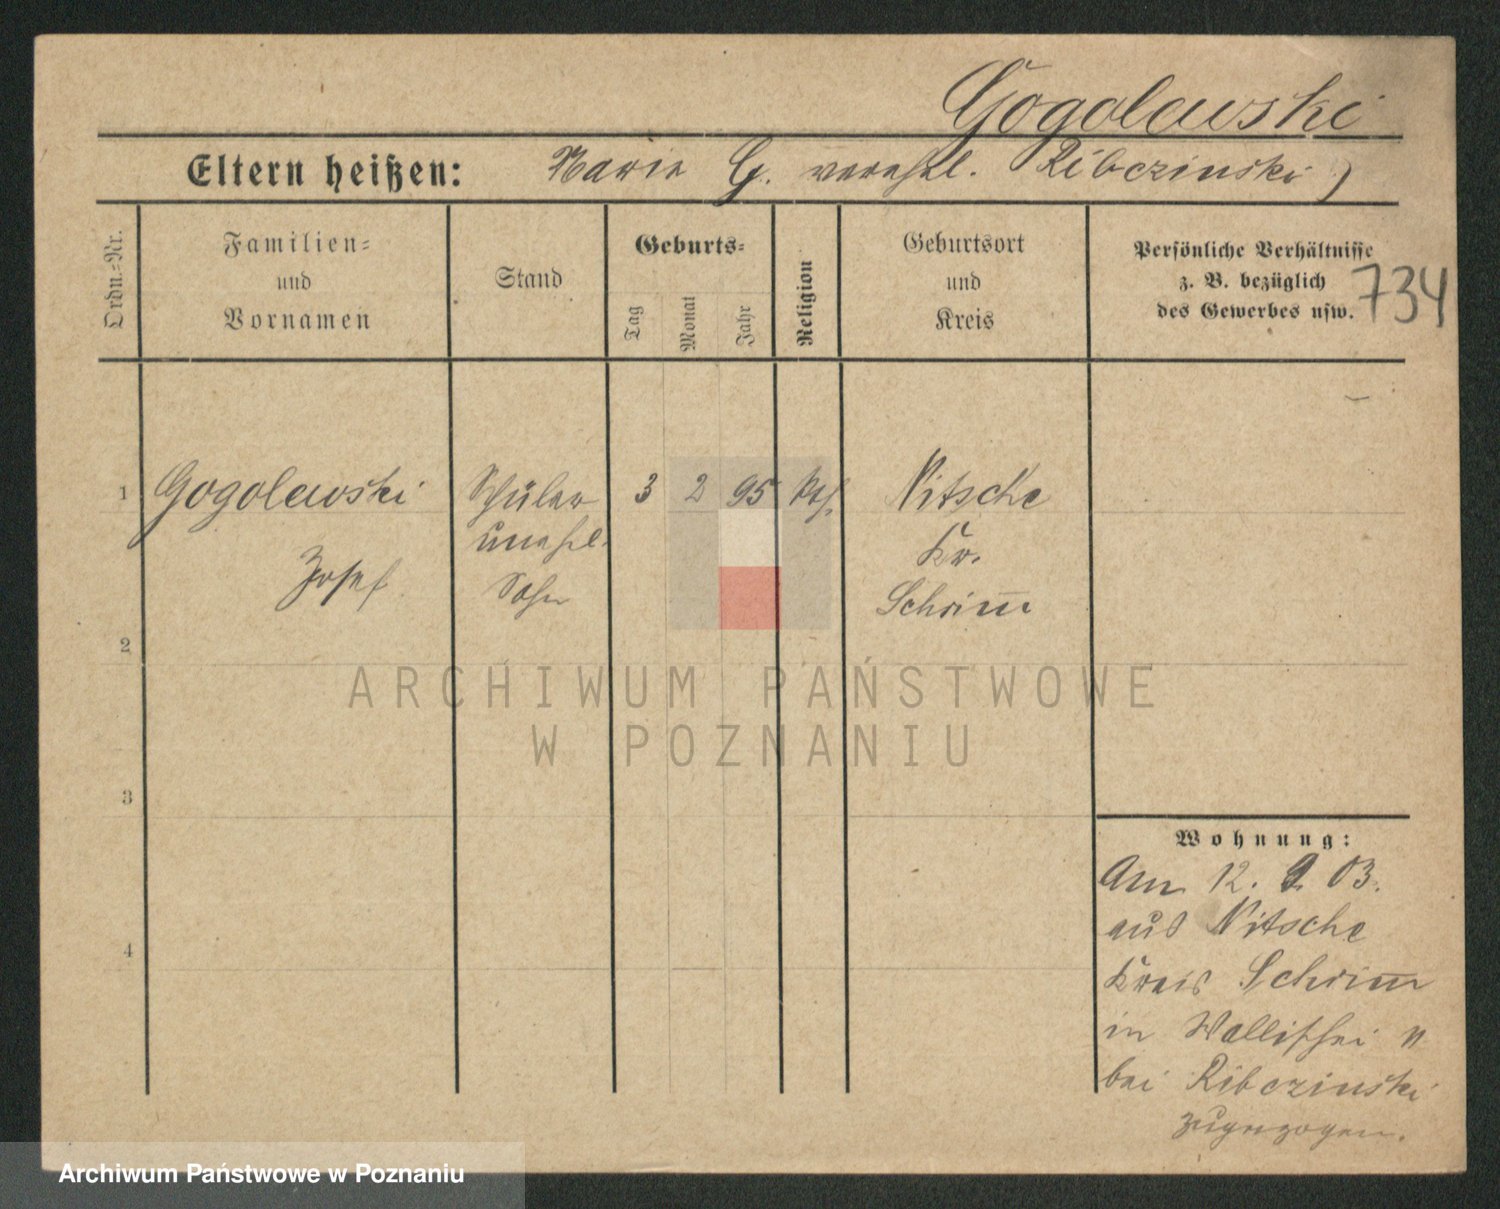 Gogolewski
Eltern heißen: Marie G. verehel. Ribczinski)
Ordn.=Nr.
Familien=
und
Vornamen
Stand
Geburts=
Tag
Monat
Jahr
Religion
Geburtsort
und
Kreis
Persönliche Verhältnisse
z. B. bezüglich
des Gewerbes usw.
734
1 Gogolewski Schüler 3 2 95 kath. Nitsche
unehel. Kr.
Josef Sohn Schrimm
2
3
4
Wohnung:
Am 12. 9. 03.
aus Nitsche
Kreis Schrimm
in Wallischei 11
bei Ribczinski
zugezogen.
ARCHIWUM PAŃSTWOWE
W POZNANIU
Archiwum Państwowe w Poznaniu